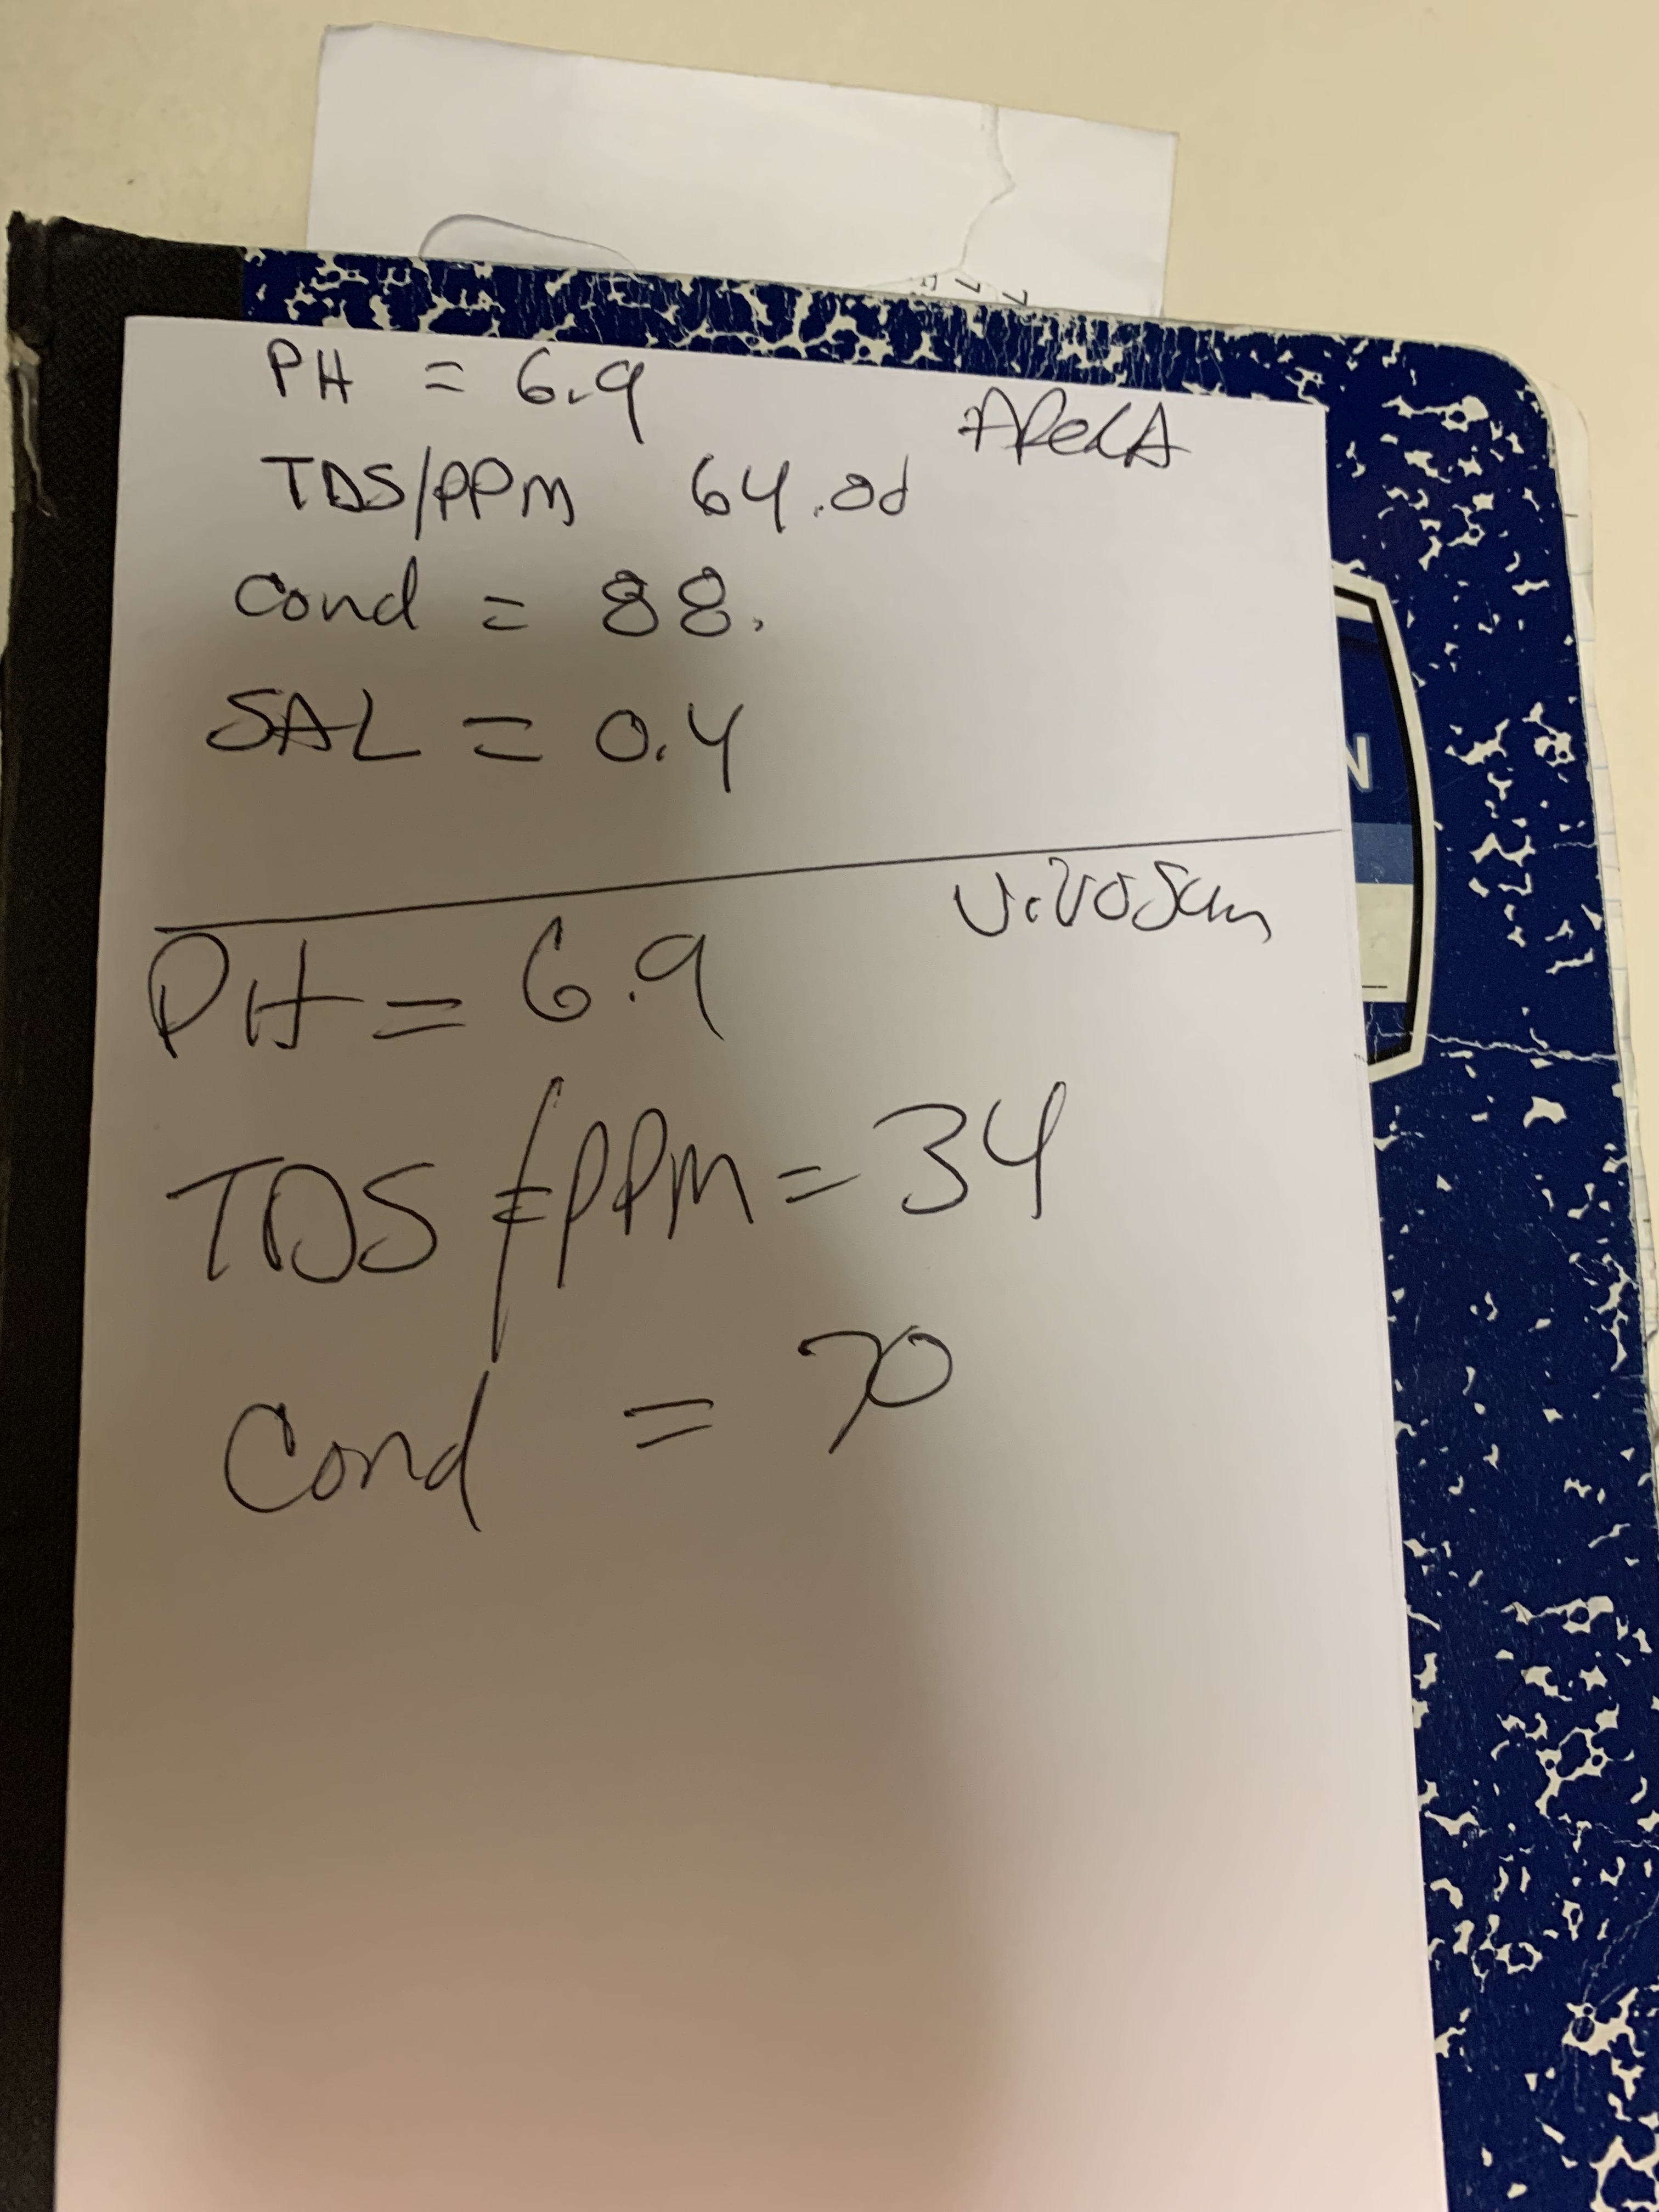 PH = 6.9
APeLA
TDS/PPM 64.0d
Cond = 88.
SAL = 0.4
PH = 6.9
TDS /PPM = 34
Cond = 70
N